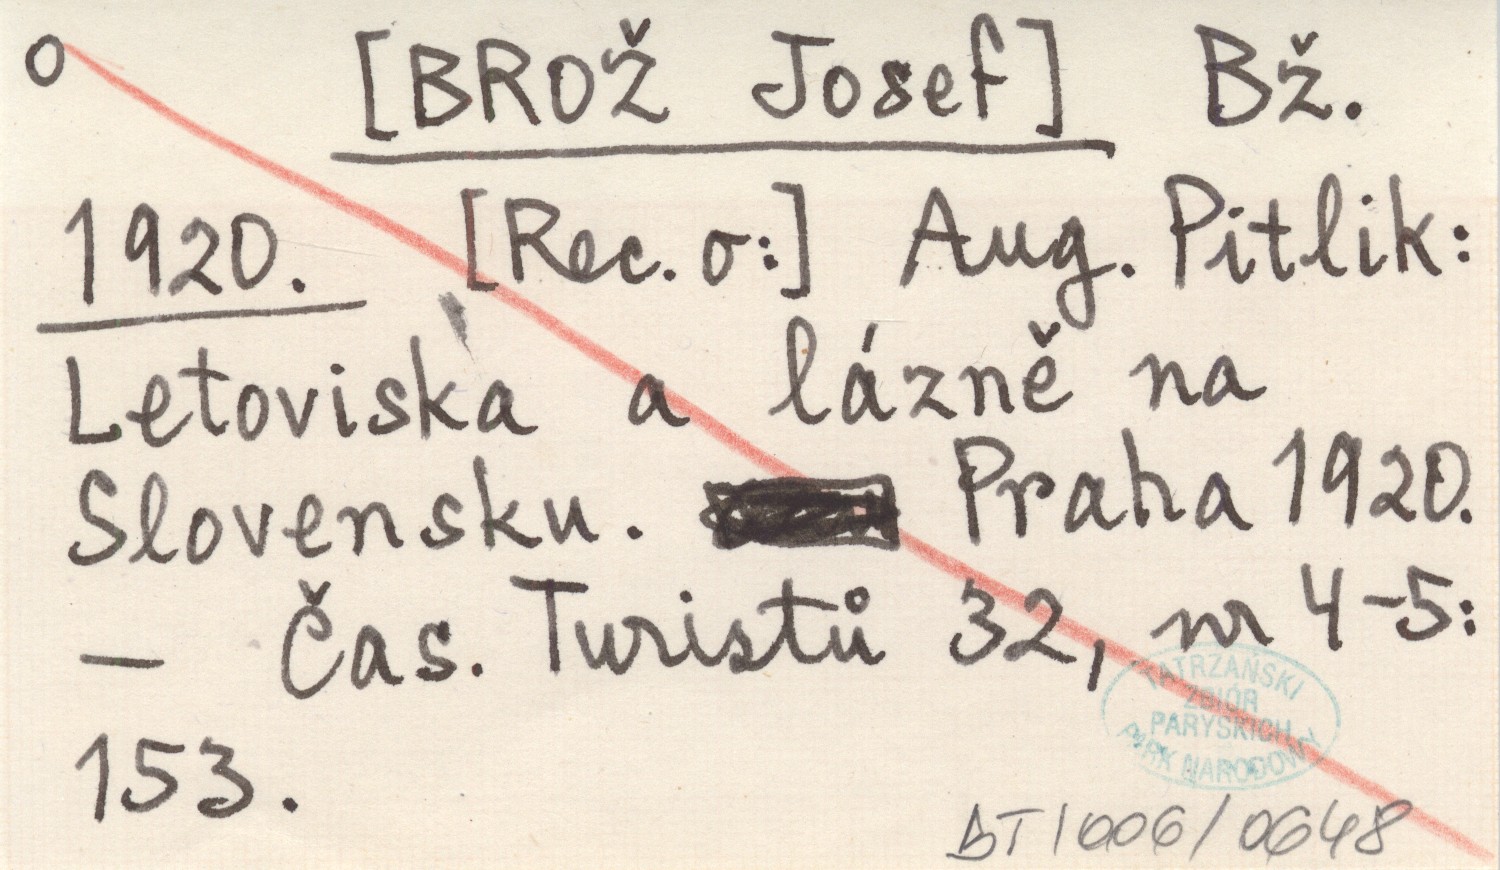 o [BROŽ Josef] Bž.
1920. [Rec. o:] Aug. Pitlik:
Letoviska a lázně na
Slovensku. Praha 1920.
— Čas. Turistů 32, nr 4-5:
153.
TATRZAŃSKI
ZBIÓR
PARYSKICH
PARK NARODOWY
BT/006/0648